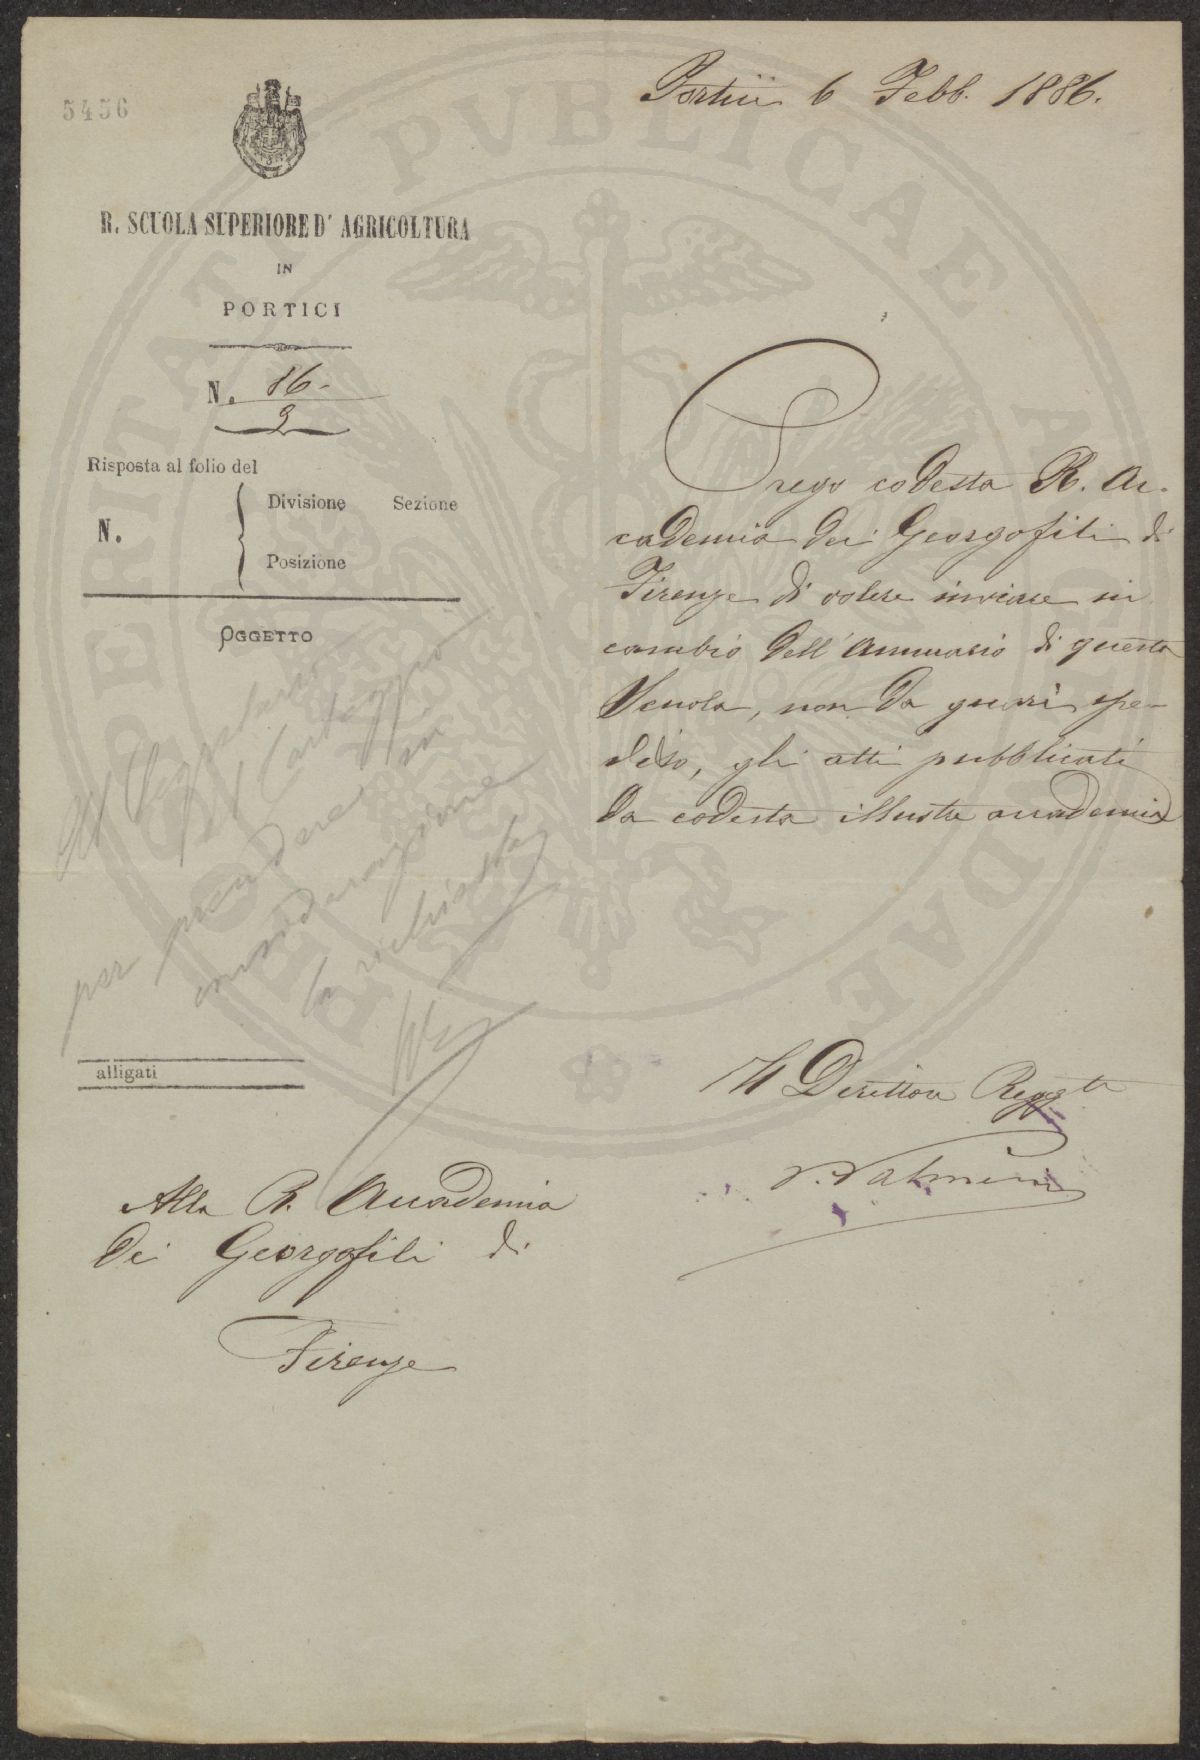 5456
Portici 6 Febb. 1886.
R. SCUOLA SUPERIORE D' AGRICOLTURA
IN
PORTICI
N. 86-
2
Risposta al folio del
Divisione Sezione
N.
Posizione
OGGETTO
Prego codesta R. Ac-
cademia dei Georgofili di
Firenze di volere inviare in
cambio dell'Annuario di questa
Scuola, non da guari spe-
dito, gli atti pubblicati
da codesta illustre accademia
Al Segretario
del Carteggio
per prendere in
considerazione
la richiesta
alligati
Il Direttore Reggte
Alla R. Accademia
dei Georgofili di
Firenze
PROSPERITATI PVBLICAE AVGENDAE